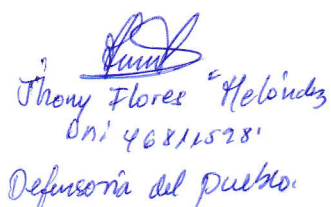 Jhony Flores Meléndez
Dni 46811528
Defensoría del pueblo.